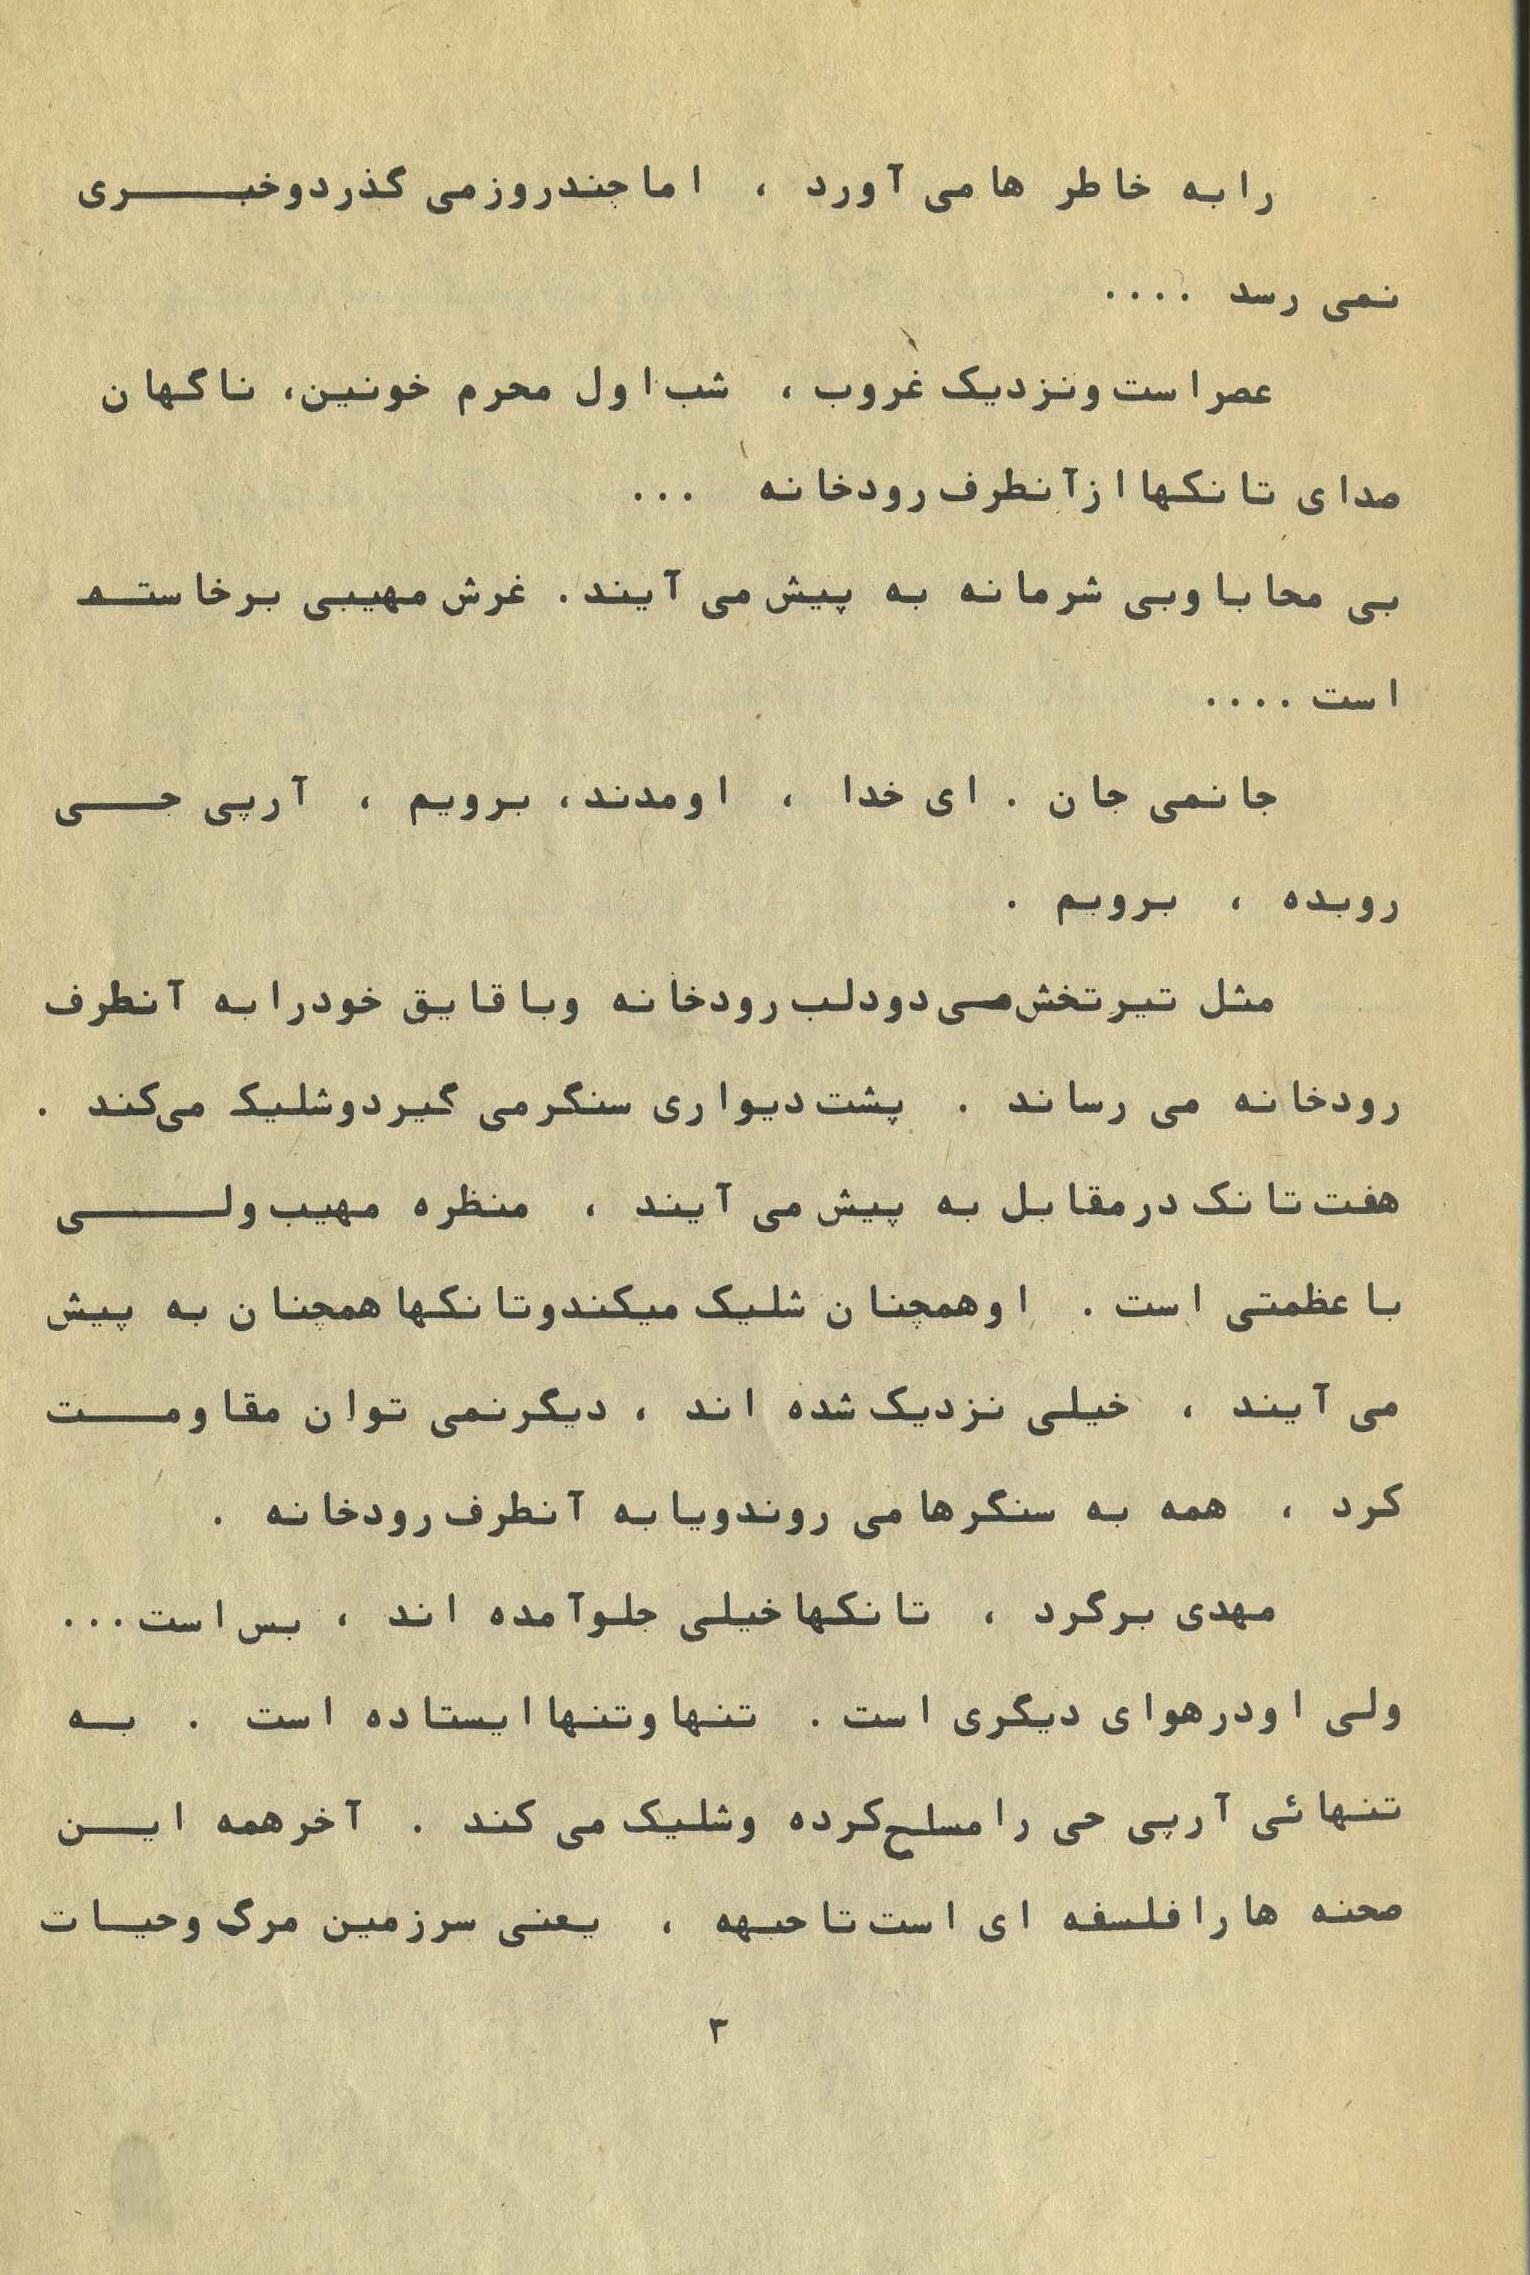 را به خاطر ها می آورد ، اما چند روز می گذرد و خبری
نمی رسد ....
عصر است و نزدیک غروب ، شب اول محرم خونین، ناگهان
صدای تانکها از آنطرف رودخانه ...
بی محابا و بی شرمانه به پیش می آیند. غرش مهیبی برخاسته
است ....
جانمی جان . ای خدا ، اومدند، برویم ، آرپی جی
رو بده ، برویم .
مثل تیر تخش می دود لب رودخانه و با قایق خود را به آنطرف
رودخانه می رساند . پشت دیواری سنگر می گیرد و شلیک می‌کند .
هفت تانک در مقابل به پیش می آیند ، منظره مهیب ولی
با عظمتی است . او همچنان شلیک میکند و تانکها همچنان به پیش
می آیند ، خیلی نزدیک شده اند ، دیگر نمی توان مقاومت
کرد ، همه به سنگرها می روند و یا به آنطرف رودخانه .
مهدی برگرد ، تانکها خیلی جلو آمده اند ، بس است...
ولی او در هوای دیگری است . تنها و تنها ایستاده است . به
تنهائی آرپی جی را مسلح کرده و شلیک می کند . آخر همه این
صحنه ها را فلسفه ای است تا جبهه ، یعنی سرزمین مرگ و حیات
۳